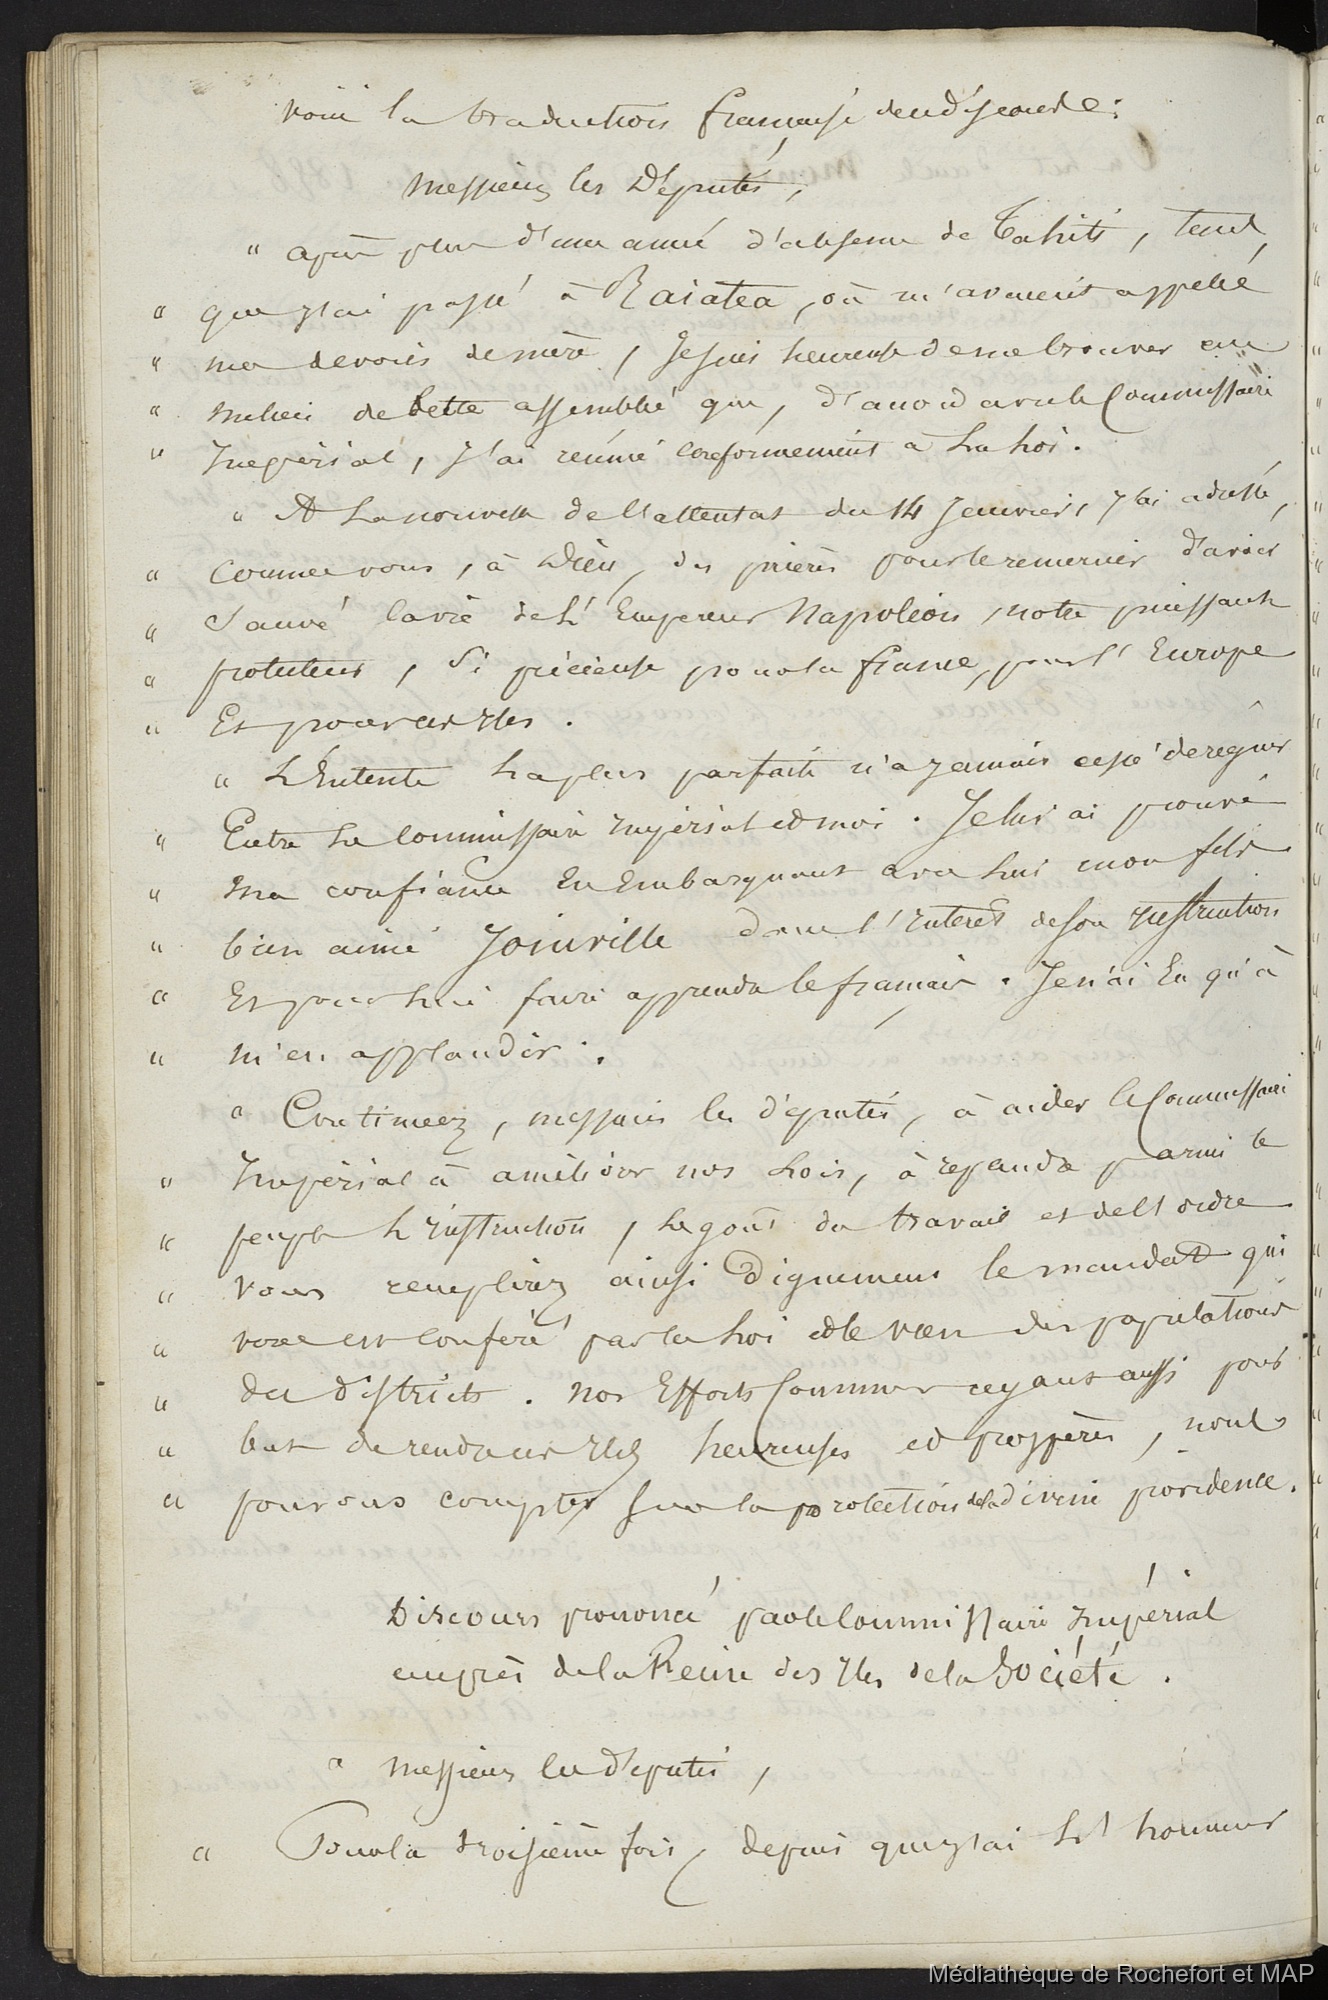 voici la traduction française deu discourde :
Messieurs les Députés,
" après plus d'une année d'absence de Tahiti, tems
" que j'ai passé à Raiatea, où m'avaient appelé
" mes devoirs de mère, Je suis heureuse de me trouver au
" milieu de Cette assemblée que, d'accord avec le Commissaire
" Impérial, j'ai réunie conformement a La Loi.
" A La nouvelle de l'attentat du 14 Janvier, j'ai adressé,
" comme vous, à Dieu, des prières pour le remercier d'avoir
" Sauvé la vie de L'Empereur Napoléon, notre puissant
" protecteur, Si précieuse pour la france, pour l'Europe
" Et pour ces Iles.
" L'Entente La plus parfaite n'a jamais cessé de règner
" Entre Le Commissaire Impérial et moi. Je lui ai prouvé
" Ma confiance En Embarquant avec Lui mon fils
" bien aimé Joinville dans l'Interêt de son Instruction
" Et pour Lui faire apprendre le français. Je n'ai Eu qu'à
" m'en applaudir.
" Continuez, messieurs les députés, à aider le Commissaire
" Impérial à améliorer nos Lois, à répandre parmi le
" peuple L'instruction, Le goût du travail et de l'ordre
" Vous remplirez ainsi Dignement le mandat qui
" vous est Conféré par la Loi et le vœu des populations
" des districts. Nos Efforts Communs ayant aussi pour
" but de rendre ces Iles heureuses et prospères, nous
" pouvons compter Sur la protection de la divine providence.
Discours prononcé par le Commissaire Impérial
auprès de la Reine des Iles de la Société.
" Messieurs les députés,
" Pour la troisième fois, depuis que j'ai L'honneur
Médiathèque de Rochefort et MAP